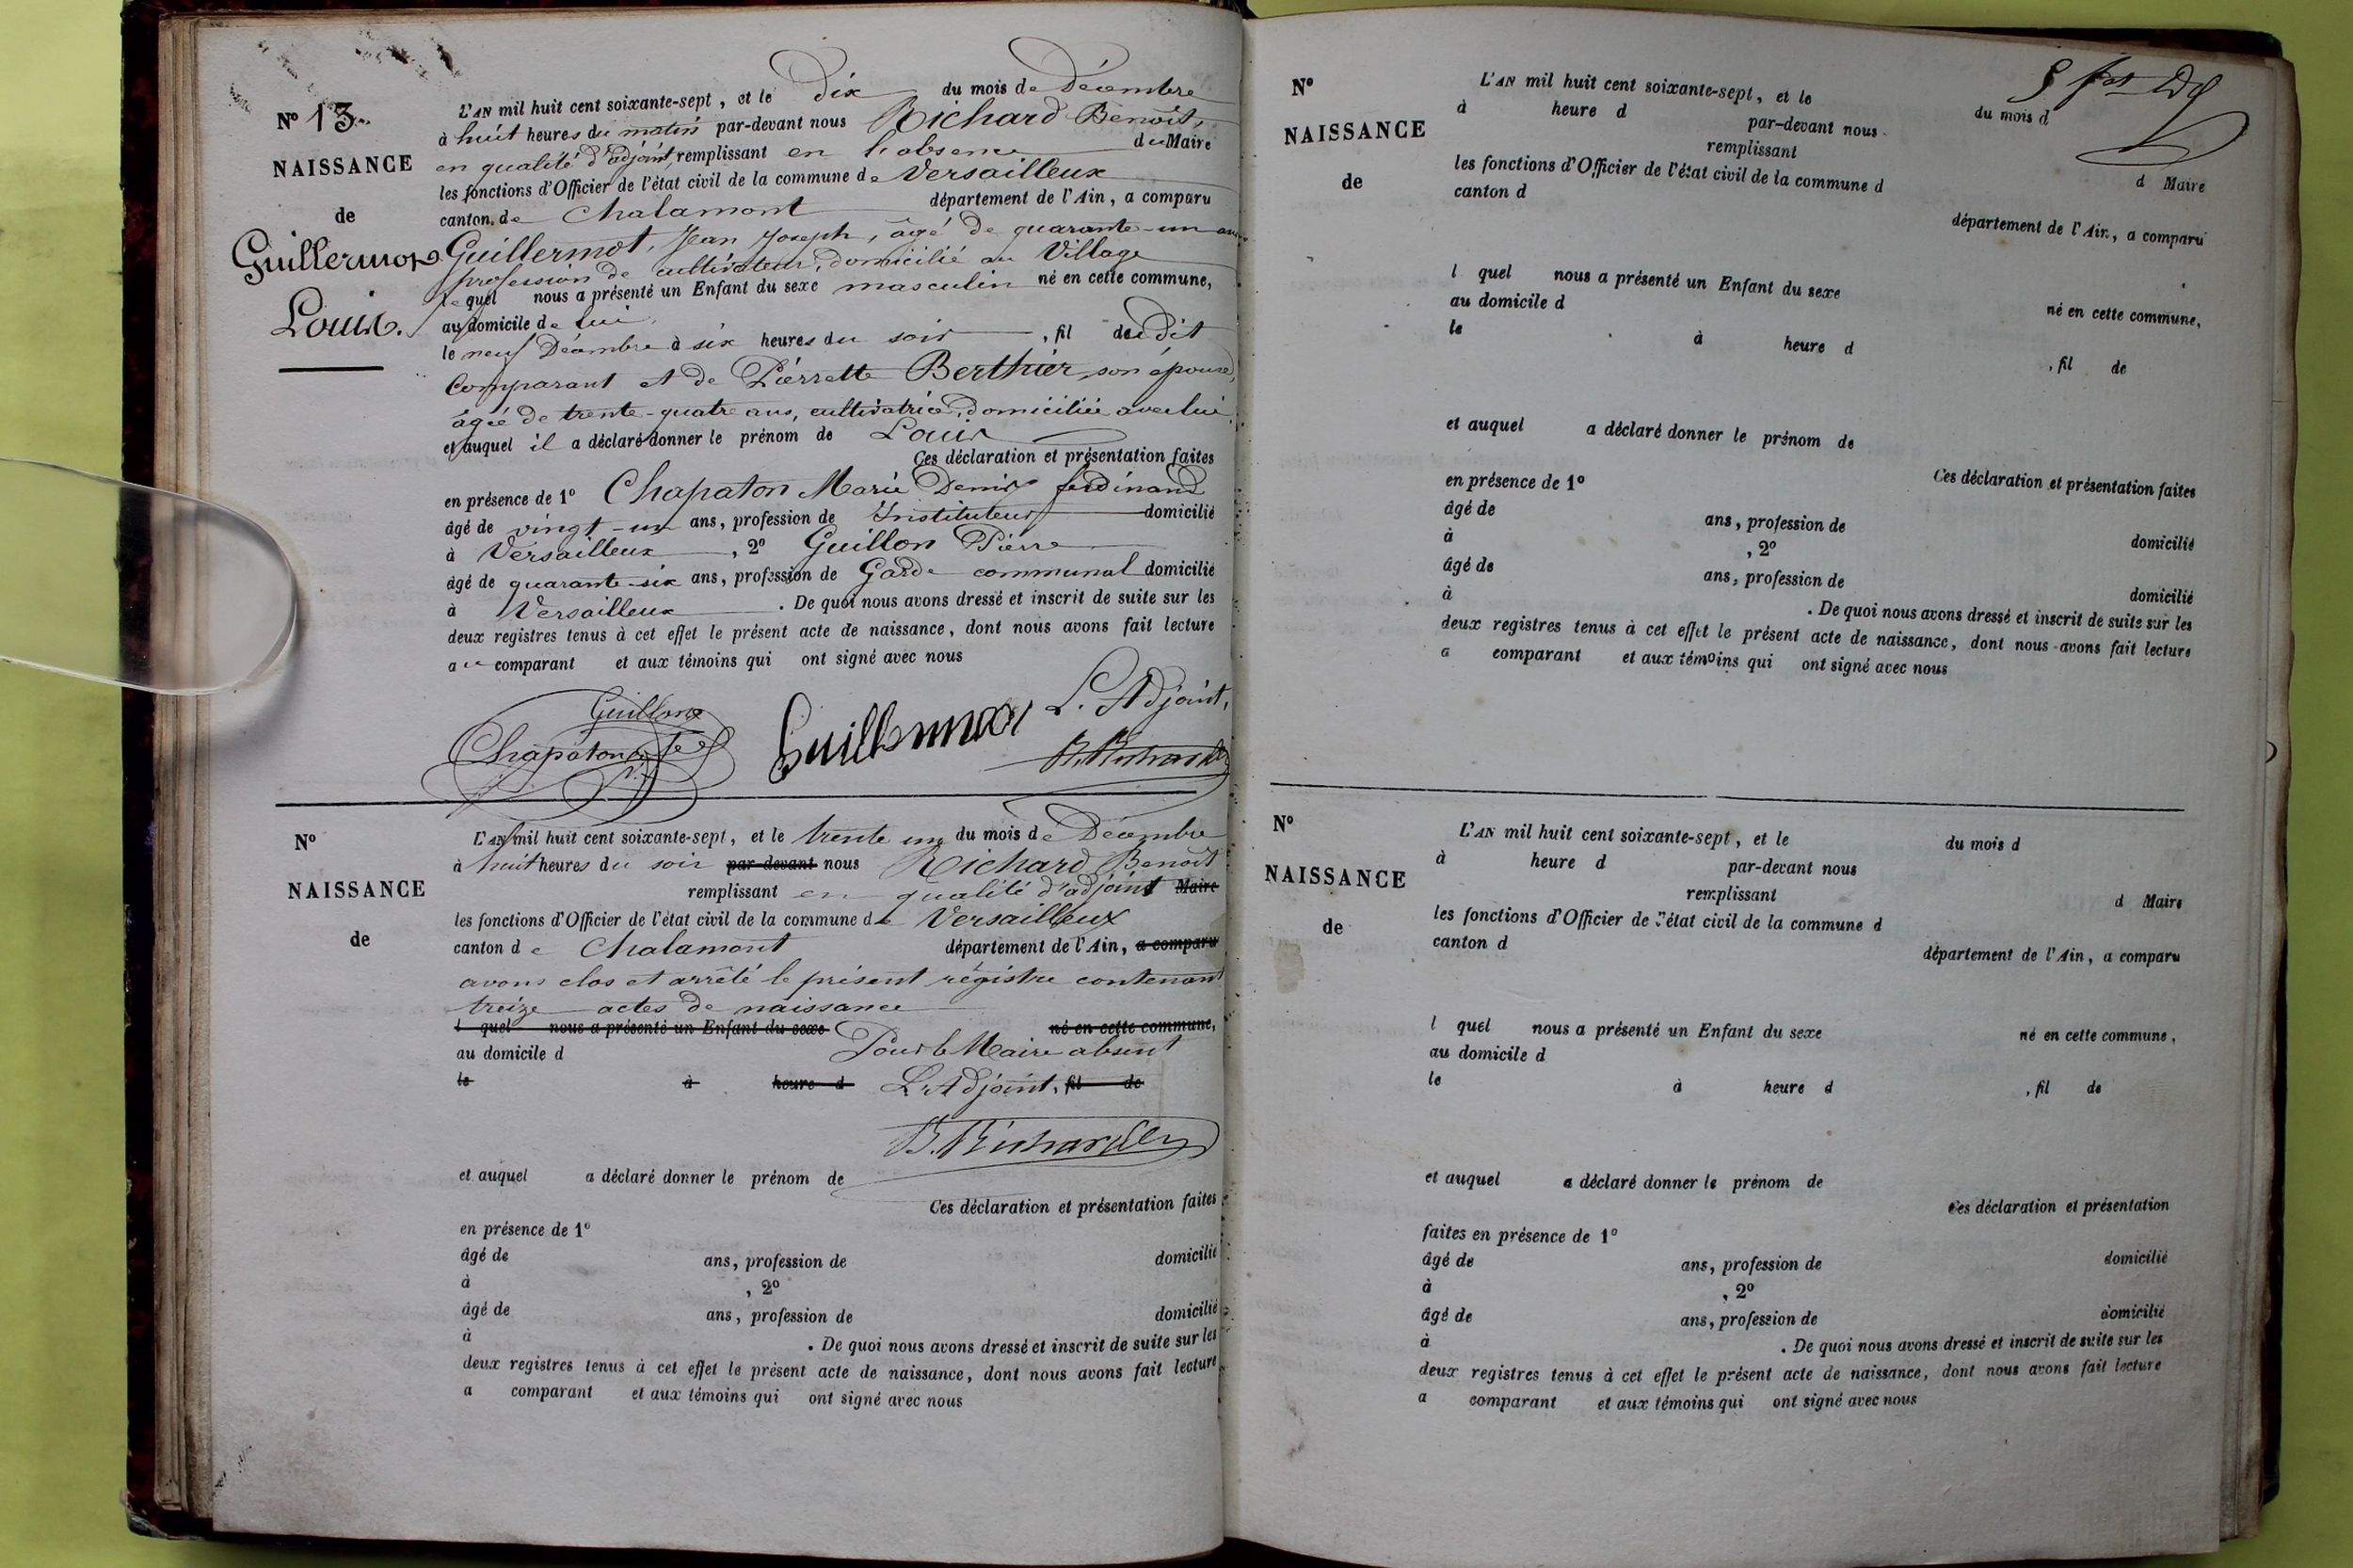 N° 13
NAISSANCE
de
Guillermot
Louis.
L'AN mil huit cent soixante-sept, et le dix du mois de Décembre
à huit heures du matin par-devant nous Richard Benoit,
en qualité d'adjoint, remplissant en l'absence du Maire
les fonctions d'Officier de l'état civil de la commune de Versailleux
canton de Chalamont département de l'Ain, a comparu
Guillermot, Jean Joseph, âgé de quarante-un ans
profession de cultivateur, domicilié au Village
lequel nous a présenté un Enfant du sexe masculin né en cette commune,
au domicile de lui,
le neuf Décembre à six heures du soir, fil dudit
Comparant et de Pierrette Berthier, son épouse,
âgée de trente-quatre ans, cultivatrice, domiciliée avec lui
et auquel il a déclaré donner le prénom de Louis
Ces déclaration et présentation faites
en présence de 1° Chapaton Marie Denis ferdinand
âgé de vingt-un ans, profession de Instituteur domicilié
à Versailleux, 2° Guillon Pierre
âgé de quarante-six ans, profession de Garde communal domicilié
à Versailleux. De quoi nous avons dressé et inscrit de suite sur les
deux registres tenus à cet effet le présent acte de naissance, dont nous avons fait lecture
au comparant et aux témoins qui ont signé avec nous
Guillon
Chapaton
Guillermot
L'Adjoint,
B. Richard
N°
NAISSANCE
de
L'AN mil huit cent soixante-sept, et le trente un du mois de Décembre
à huit heures du soir par-devant nous Richard Benoit
remplissant en qualité d'adjoint Maire
les fonctions d'Officier de l'état civil de la commune de Versailleux
canton de Chalamont département de l'Ain, a comparu
avons clos et arrêté le présent régistre contenant
treize actes de naissance
l quel nous a présenté un Enfant du sexe né en cette commune,
au domicile d Pour le Maire absent
le à heure d L'Adjoint, fil de
B. Richard
et auquel a déclaré donner le prénom de
Ces déclaration et présentation faites
en présence de 1°
âgé de ans, profession de domicilié
à , 2°
âgé de ans, profession de domicilié
à . De quoi nous avons dressé et inscrit de suite sur les
deux registres tenus à cet effet le présent acte de naissance, dont nous avons fait lecture
a comparant et aux témoins qui ont signé avec nous
N°
NAISSANCE
de
L'AN mil huit cent soixante-sept, et le du mois d
à heure d par-devant nous
remplissant d Maire
les fonctions d'Officier de l'état civil de la commune d
canton d département de l'Ain, a comparu
l quel nous a présenté un Enfant du sexe né en cette commune,
au domicile d
le à heure d , fil de
et auquel a déclaré donner le prénom de
Ces déclaration et présentation faites
en présence de 1°
âgé de ans, profession de domicilié
à , 2°
âgé de ans, profession de domicilié
à . De quoi nous avons dressé et inscrit de suite sur les
deux registres tenus à cet effet le présent acte de naissance, dont nous avons fait lecture
a comparant et aux témoins qui ont signé avec nous
N°
NAISSANCE
de
L'AN mil huit cent soixante-sept, et le du mois d
à heure d par-devant nous
remplissant d Maire
les fonctions d'Officier de l'état civil de la commune d
canton d département de l'Ain, a comparu
l quel nous a présenté un Enfant du sexe né en cette commune,
au domicile d
le à heure d , fil de
et auquel a déclaré donner le prénom de
Ces déclaration et présentation
faites en présence de 1°
âgé de ans, profession de domicilié
à , 2°
âgé de ans, profession de domicilié
à . De quoi nous avons dressé et inscrit de suite sur les
deux registres tenus à cet effet le présent acte de naissance, dont nous avons fait lecture
a comparant et aux témoins qui ont signé avec nous